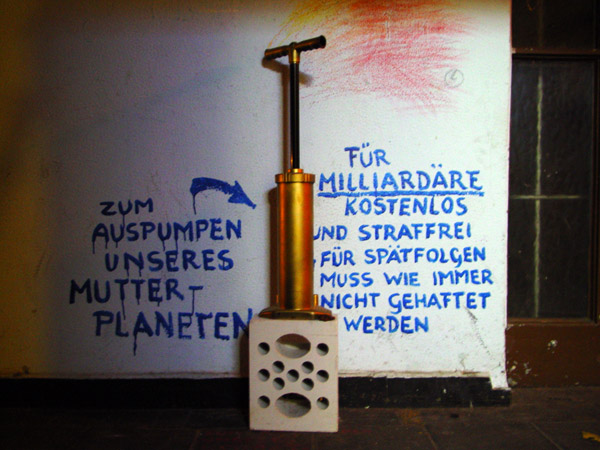 ZUM
AUSPUMPEN
UNSERES
MUTTER-
PLANETEN
FÜR
MILLIARDÄRE
KOSTENLOS
UND STRAFFREI
FÜR SPÄTFOLGEN
MUSS WIE IMMER
NICHT GEHAFTET
WERDEN